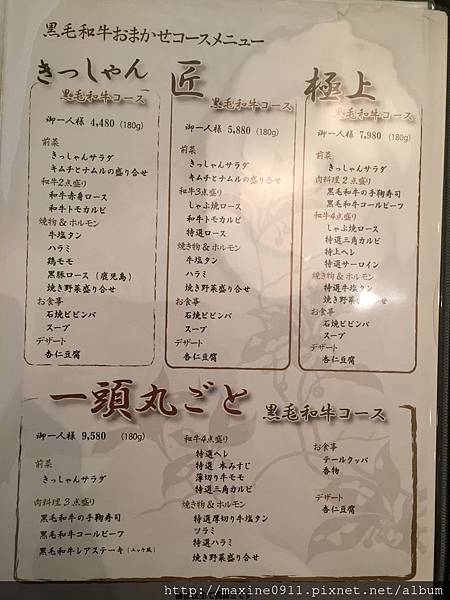 黒毛和牛おまかせコースメニュー
きっしゃん
黒毛和牛コース
御一人様 4,480 (180g)
前菜
きっしゃんサラダ
キムチとナムルの盛り合せ
和牛2点盛り
和牛赤身ロース
和牛トモカルビ
焼物&ホルモン
牛塩タン
ハラミ
鶏モモ
黒豚ロース (鹿児島)
焼き野菜盛り合せ
お食事
石焼ビビンバ
スープ
デザート
杏仁豆腐
匠
黒毛和牛コース
御一人様 5,880 (180g)
前菜
きっしゃんサラダ
キムチとナムルの盛り合せ
和牛3点盛り
しゃぶ焼ロース
和牛トモカルビ
特選ロース
焼き物&ホルモン
牛塩タン
ハラミ
焼き野菜盛り合せ
お食事
石焼ビビンバ
スープ
デザート
杏仁豆腐
極上
黒毛和牛コース
御一人様 7,980 (180g)
前菜
きっしゃんサラダ
肉料理2点盛り
黒毛和牛の手鞠寿司
黒毛和牛コールビーフ
和牛4点盛り
しゃぶ焼ロース
特選三角カルビ
特上ヘレ
特選サーロイン
焼き物&ホルモン
特選牛塩タン
焼き野菜盛り合せ
お食事
石焼ビビンバ
スープ
デザート
杏仁豆腐
一頭丸ごと
黒毛和牛コース
御一人様 9,580 (180g)
前菜
きっしゃんサラダ
肉料理3点盛り
黒毛和牛の手鞠寿司
黒毛和牛コールビーフ
黒毛和牛レアステーキ (ユッケ風)
和牛4点盛り
特選ヘレ
特選 本みすじ
薄切り牛モモ
特選三角カルビ
焼き物&ホルモン
特選厚切り牛塩タン
ツラミ
特選ハラミ
焼き野菜盛り合せ
お食事
テールクッパ
香物
デザート
杏仁豆腐
http://maxine0911.pixnet.net/album